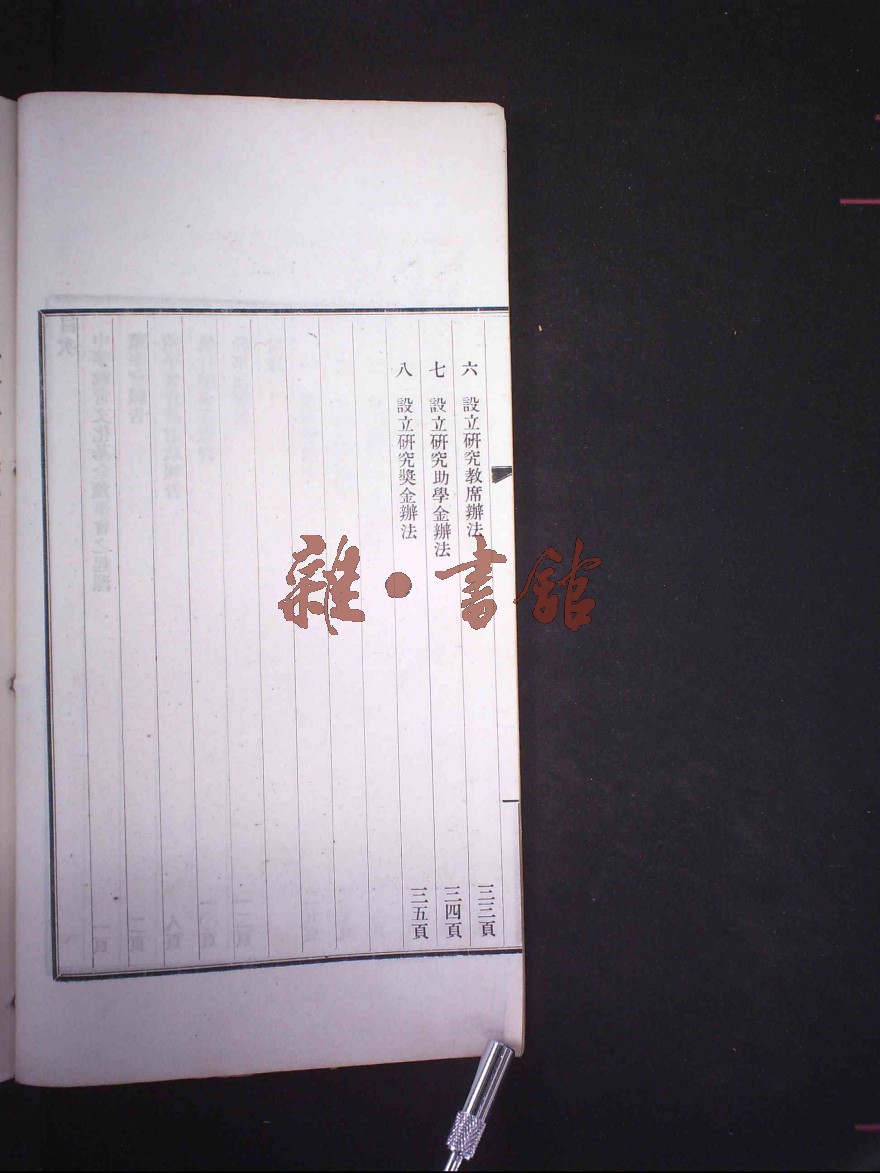 六　設立研究教席辦法　三三頁
七　設立研究助學金辦法　三四頁
八　設立研究獎金辦法　三五頁
雜·書館